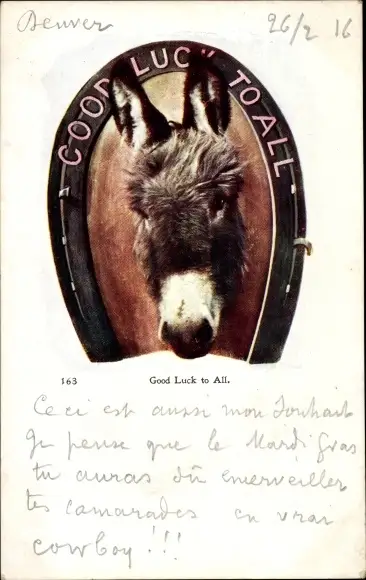 Denver 26/2 16
GOOD LUCK TO ALL
163 Good Luck to All.
Ceci est aussi mon souhait
Je pense que le Mardi Gras
tu auras dû émerveiller
tes camarades en vrai
cowboy !!!